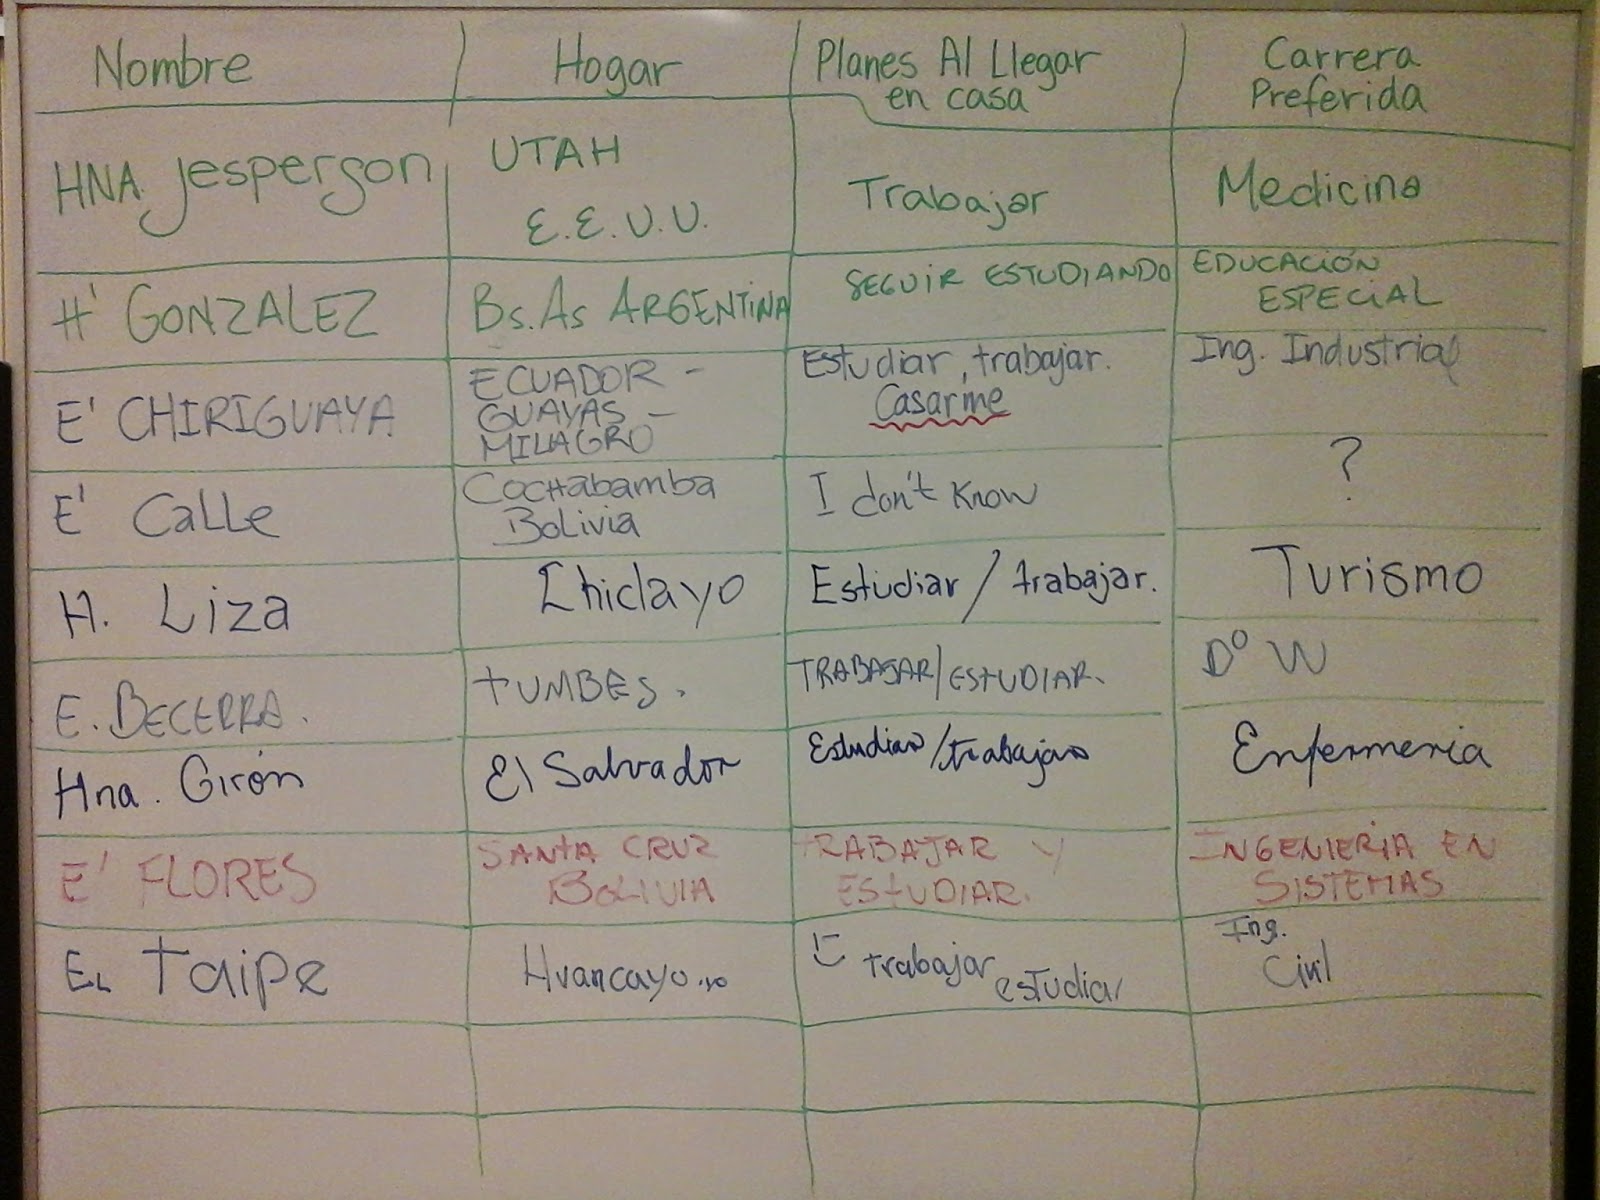 Nombre
Hogar
Planes Al Llegar
en casa
Carrera
Preferida
HNA. Jesperson
UTAH
E.E.U.U.
Trabajar
Medicina
H' GONZALEZ
Bs.As ARGENTINA
SEGUIR ESTUDIANDO
EDUCACIÓN
ESPECIAL
E' CHIRIGUAYA
ECUADOR -
GUAYAS -
MILAGRO
Estudiar, trabajar.
Casarme
Ing. Industrial
E' Calle
Cochabamba
Bolivia
I don't know
?
H. Liza
Chiclayo
Estudiar / trabajar.
Turismo
E. BECERRA.
TUMBES.
TRABAJAR/ESTUDIAR.
D° W
Hna. Girón
El Salvador
Estudiar/trabajar
Enfermeria
E' FLORES
SANTA CRUZ
BOLIVIA
TRABAJAR Y
ESTUDIAR.
INGENIERIA EN
SISTEMAS
EL Taipe
Huancayo
trabajar
estudiar
Ing.
Civil